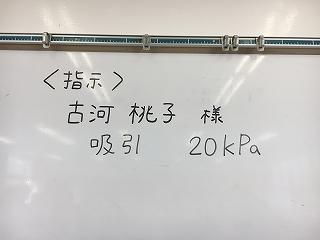 〈指示〉
古河 桃子 様
吸引 20kPa